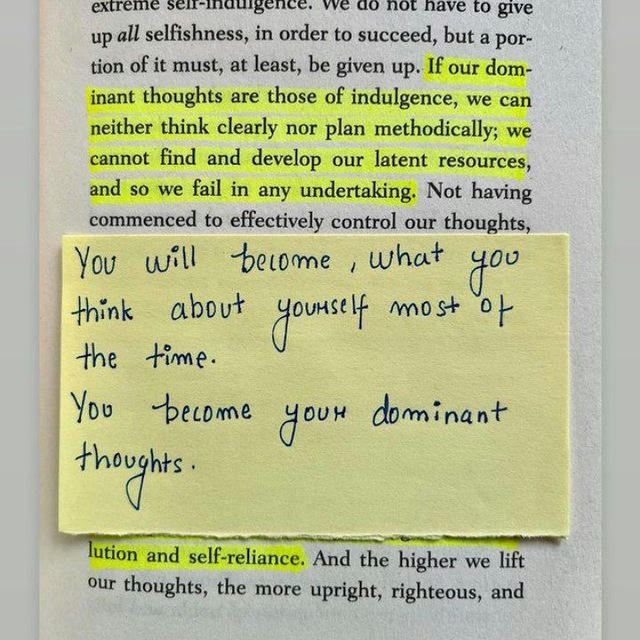 extreme self-indulgence. We do not have to give
up all selfishness, in order to succeed, but a por-
tion of it must, at least, be given up. If our dom-
inant thoughts are those of indulgence, we can
neither think clearly nor plan methodically; we
cannot find and develop our latent resources,
and so we fail in any undertaking. Not having
commenced to effectively control our thoughts,
You will become, what you
think about yourself most of
the time.
You become your dominant
thoughts.
lution and self-reliance. And the higher we lift
our thoughts, the more upright, righteous, and